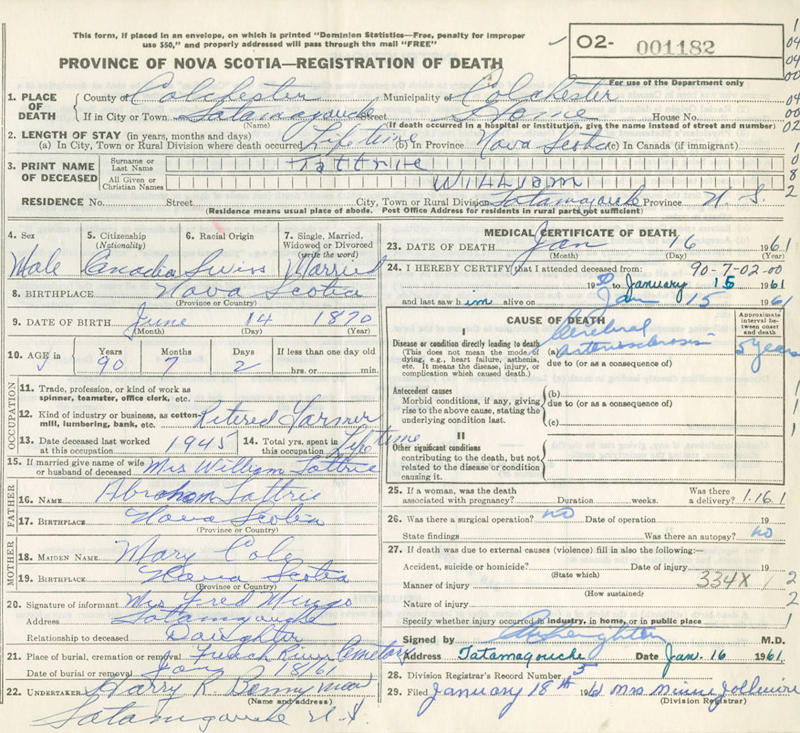 This form, if placed in an envelope, on which is printed "Dominion Statistics—Free, penalty for improper
use $50," and properly addressed will pass through the mail "FREE"
O2- 001182
PROVINCE OF NOVA SCOTIA—REGISTRATION OF DEATH
For use of the Department only
1. PLACE OF DEATH { County of Colchester Municipality of Colchester
If in City or Town Tatamagouche Street Home House No.
(Name) (If death occurred in a hospital or institution, give the name instead of street and number)
2. LENGTH OF STAY (in years, months and days)
(a) In City, Town or Rural Division where death occurred Lifetime (b) In Province Nova Scotia (c) In Canada (if immigrant)
3. PRINT NAME OF DECEASED { Surname or Last Name Tattrie
All Given or Christian Names William
RESIDENCE No. Street City, Town or Rural Division Tatamagouche Province N. S.
(Residence means usual place of abode. Post Office Address for residents in rural parts not sufficient)
4. Sex 5. Citizenship (Nationality) 6. Racial Origin 7. Single, Married, Widowed or Divorced (write the word)
Male Canadia Swiss Married
8. BIRTHPLACE Nova Scotia
(Province or Country)
9. DATE OF BIRTH June 14 1870
(Month) (Day) (Year)
10. AGE in Years Months Days If less than one day old
90 7 2 hrs. or min.
OCCUPATION
11. Trade, profession, or kind of work as spinner, teamster, office clerk, etc.
12. Kind of industry or business, as cotton-mill, lumbering, bank, etc. Retired Farmer
13. Date deceased last worked at this occupation 1945 14. Total yrs. spent in this occupation Life time
15. If married give name of wife or husband of deceased Mrs William Tattrie
FATHER
16. NAME Abraham Tattrie
17. BIRTHPLACE Nova Scotia
(Province or Country)
MOTHER
18. MAIDEN NAME Mary Cole
19. BIRTHPLACE Nova Scotia
(Province or Country)
20. Signature of informant Mrs Fred Mingo
Address Tatamagouche
Relationship to deceased Daughter
21. Place of burial, cremation or removal French River Cemetary
Date of burial or removal Jan 18/61
22. UNDERTAKER Harry R. Bonnyman
(Name and address)
Tatamagouche N. S.
MEDICAL CERTIFICATE OF DEATH
23. DATE OF DEATH Jan 16 1961
(Month) (Day) (Year)
24. I HEREBY CERTIFY that I attended deceased from: 90-7-02-00
19 to January 15 1961
and last saw him alive on Jan 15 1961
CAUSE OF DEATH
Approximate interval between onset and death
I
Disease or condition directly leading to death
(This does not mean the mode of dying, e.g., heart failure, asthenia, etc. It means the disease, injury, or complication which caused death.)
(a) Cerebral arteriosclerosis 5 years
due to (or as a consequence of)
Antecedent causes
Morbid conditions, if any, giving rise to the above cause, stating the underlying condition last.
(b)
due to (or as a consequence of)
(c)
II
Other significant conditions
contributing to the death, but not related to the disease or condition causing it.
25. If a woman, was the death associated with pregnancy? Duration weeks. Was there a delivery? 1.16.1
26. Was there a surgical operation? no Date of operation 19
State findings Was there an autopsy? no
27. If death was due to external causes (violence) fill in also the following:—
Accident, suicide or homicide? Date of injury 19
(State which)
Manner of injury 334X
(How sustained)
Nature of injury
Specify whether injury occurred in industry, in home, or in public place
Signed by M.D.
Address Tatamagouche Date Jan. 16 1961
28. Division Registrar's Record Number 5
29. Filed January 18th 1961 Mrs Minnie
(Division Registrar)